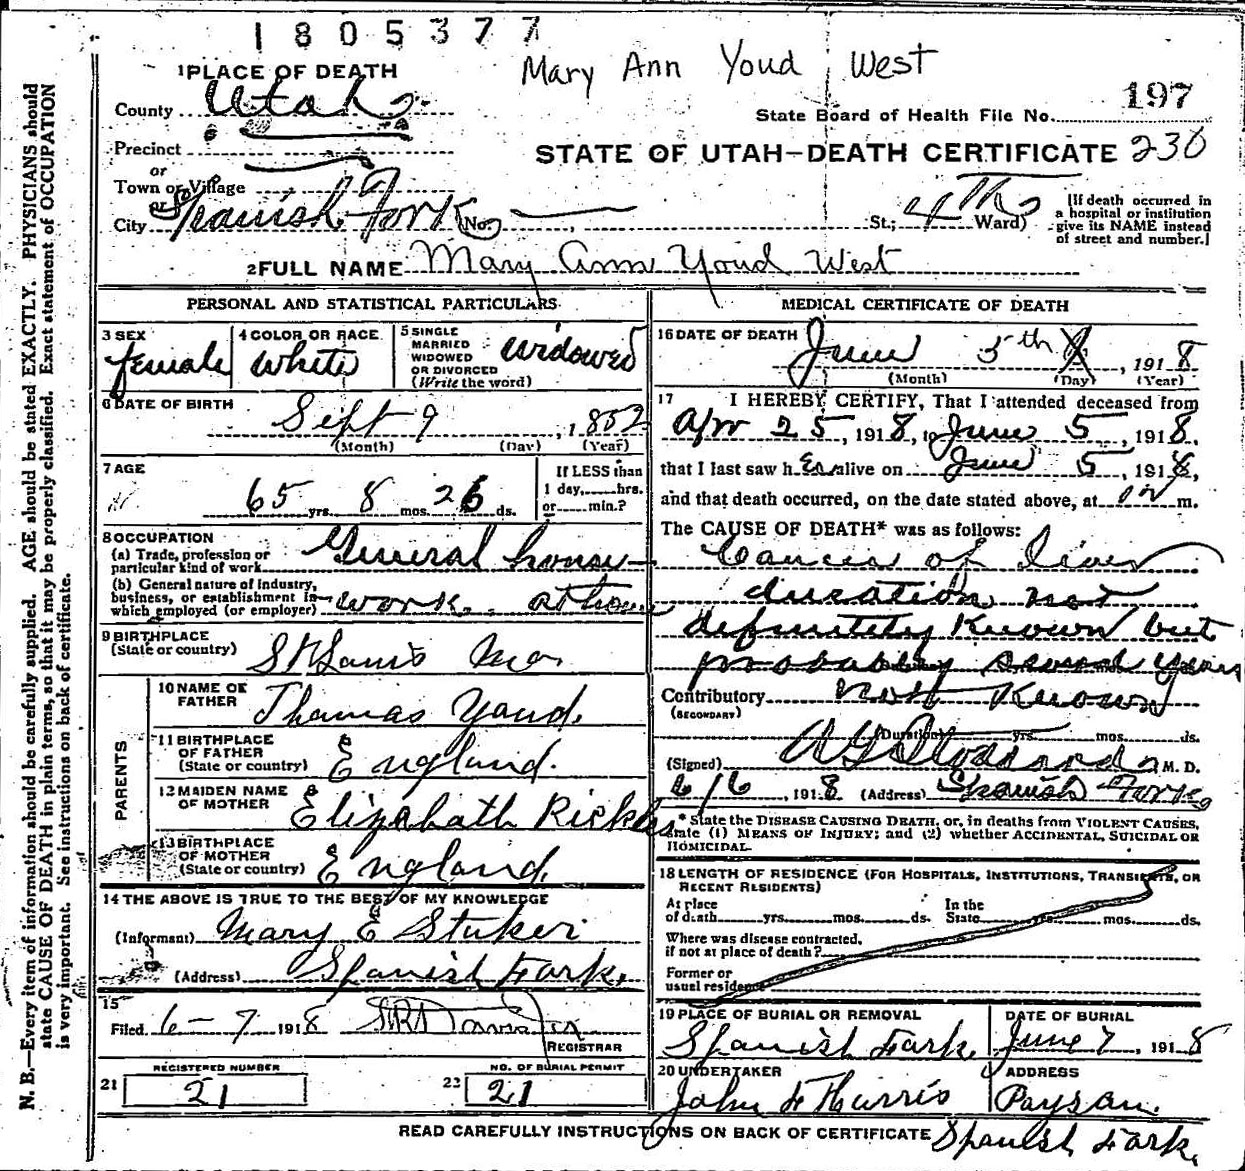 1805377
Mary Ann Youd West
1 PLACE OF DEATH
County Utah
197
State Board of Health File No.
Precinct
STATE OF UTAH—DEATH CERTIFICATE 230
or
Town or Village
or
City Spanish Fork No. St.; 4th Ward)
[If death occurred in
a hospital or institution
give its NAME instead
of street and number.]
2 FULL NAME Mary Ann Youd West
PERSONAL AND STATISTICAL PARTICULARS
3 SEX
female
4 COLOR OR RACE
White
5 SINGLE
MARRIED
WIDOWED
OR DIVORCED
(Write the word)
widowed
6 DATE OF BIRTH
Sept 9, 1852
(Month) (Day) (Year)
7 AGE
65 yrs. 8 mos. 26 ds.
If LESS than
1 day, hrs.
or min.?
8 OCCUPATION
(a) Trade, profession or
particular kind of work General house-
(b) General nature of industry,
business, or establishment in
which employed (or employer) work. at home
9 BIRTHPLACE
(State or country) St Louis Mo.
PARENTS
10 NAME OF
FATHER Thomas Youd.
11 BIRTHPLACE
OF FATHER
(State or country) England.
12 MAIDEN NAME
OF MOTHER Elizabath
13 BIRTHPLACE
OF MOTHER
(State or country) England
14 THE ABOVE IS TRUE TO THE BEST OF MY KNOWLEDGE
(Informant) Mary E
(Address) Spanish Fork.
15
Filed 6-7 1918
REGISTRAR
21 REGISTERED NUMBER
21
22 NO. OF BURIAL PERMIT
21
MEDICAL CERTIFICATE OF DEATH
16 DATE OF DEATH
June 5th, 1918
(Month) (Day) (Year)
17 I HEREBY CERTIFY, That I attended deceased from
Apr 25, 1918, to June 5, 1918,
that I last saw her alive on June 5, 1918,
and that death occurred, on the date stated above, at m.
The CAUSE OF DEATH* was as follows:
Cancer of liver
duration not
definitely known but
probably several years
Contributory not known
(SECONDARY)
(Duration) yrs. mos. ds.
(Signed) M. D.
6/6, 1918 (Address) Spanish Fork
* State the DISEASE CAUSING DEATH, or, in deaths from VIOLENT CAUSES,
state (1) MEANS OF INJURY; and (2) whether ACCIDENTAL, SUICIDAL OR
HOMICIDAL.
18 LENGTH OF RESIDENCE (FOR HOSPITALS, INSTITUTIONS, TRANSIENTS, OR
RECENT RESIDENTS)
At place
of death yrs. mos. ds.
In the
State yrs. mos. ds.
Where was disease contracted,
if not at place of death?
Former or
usual residence
19 PLACE OF BURIAL OR REMOVAL
Spanish Fark.
DATE OF BURIAL
June 7, 1918
20 UNDERTAKER
John F Harris
ADDRESS
Payson.
READ CAREFULLY INSTRUCTIONS ON BACK OF CERTIFICATE Spanish Fark.
N. B.—Every item of information should be carefully supplied. AGE should be stated EXACTLY. PHYSICIANS should
state CAUSE OF DEATH in plain terms, so that it may be properly classified. Exact statement of OCCUPATION
is very important. See instructions on back of certificate.